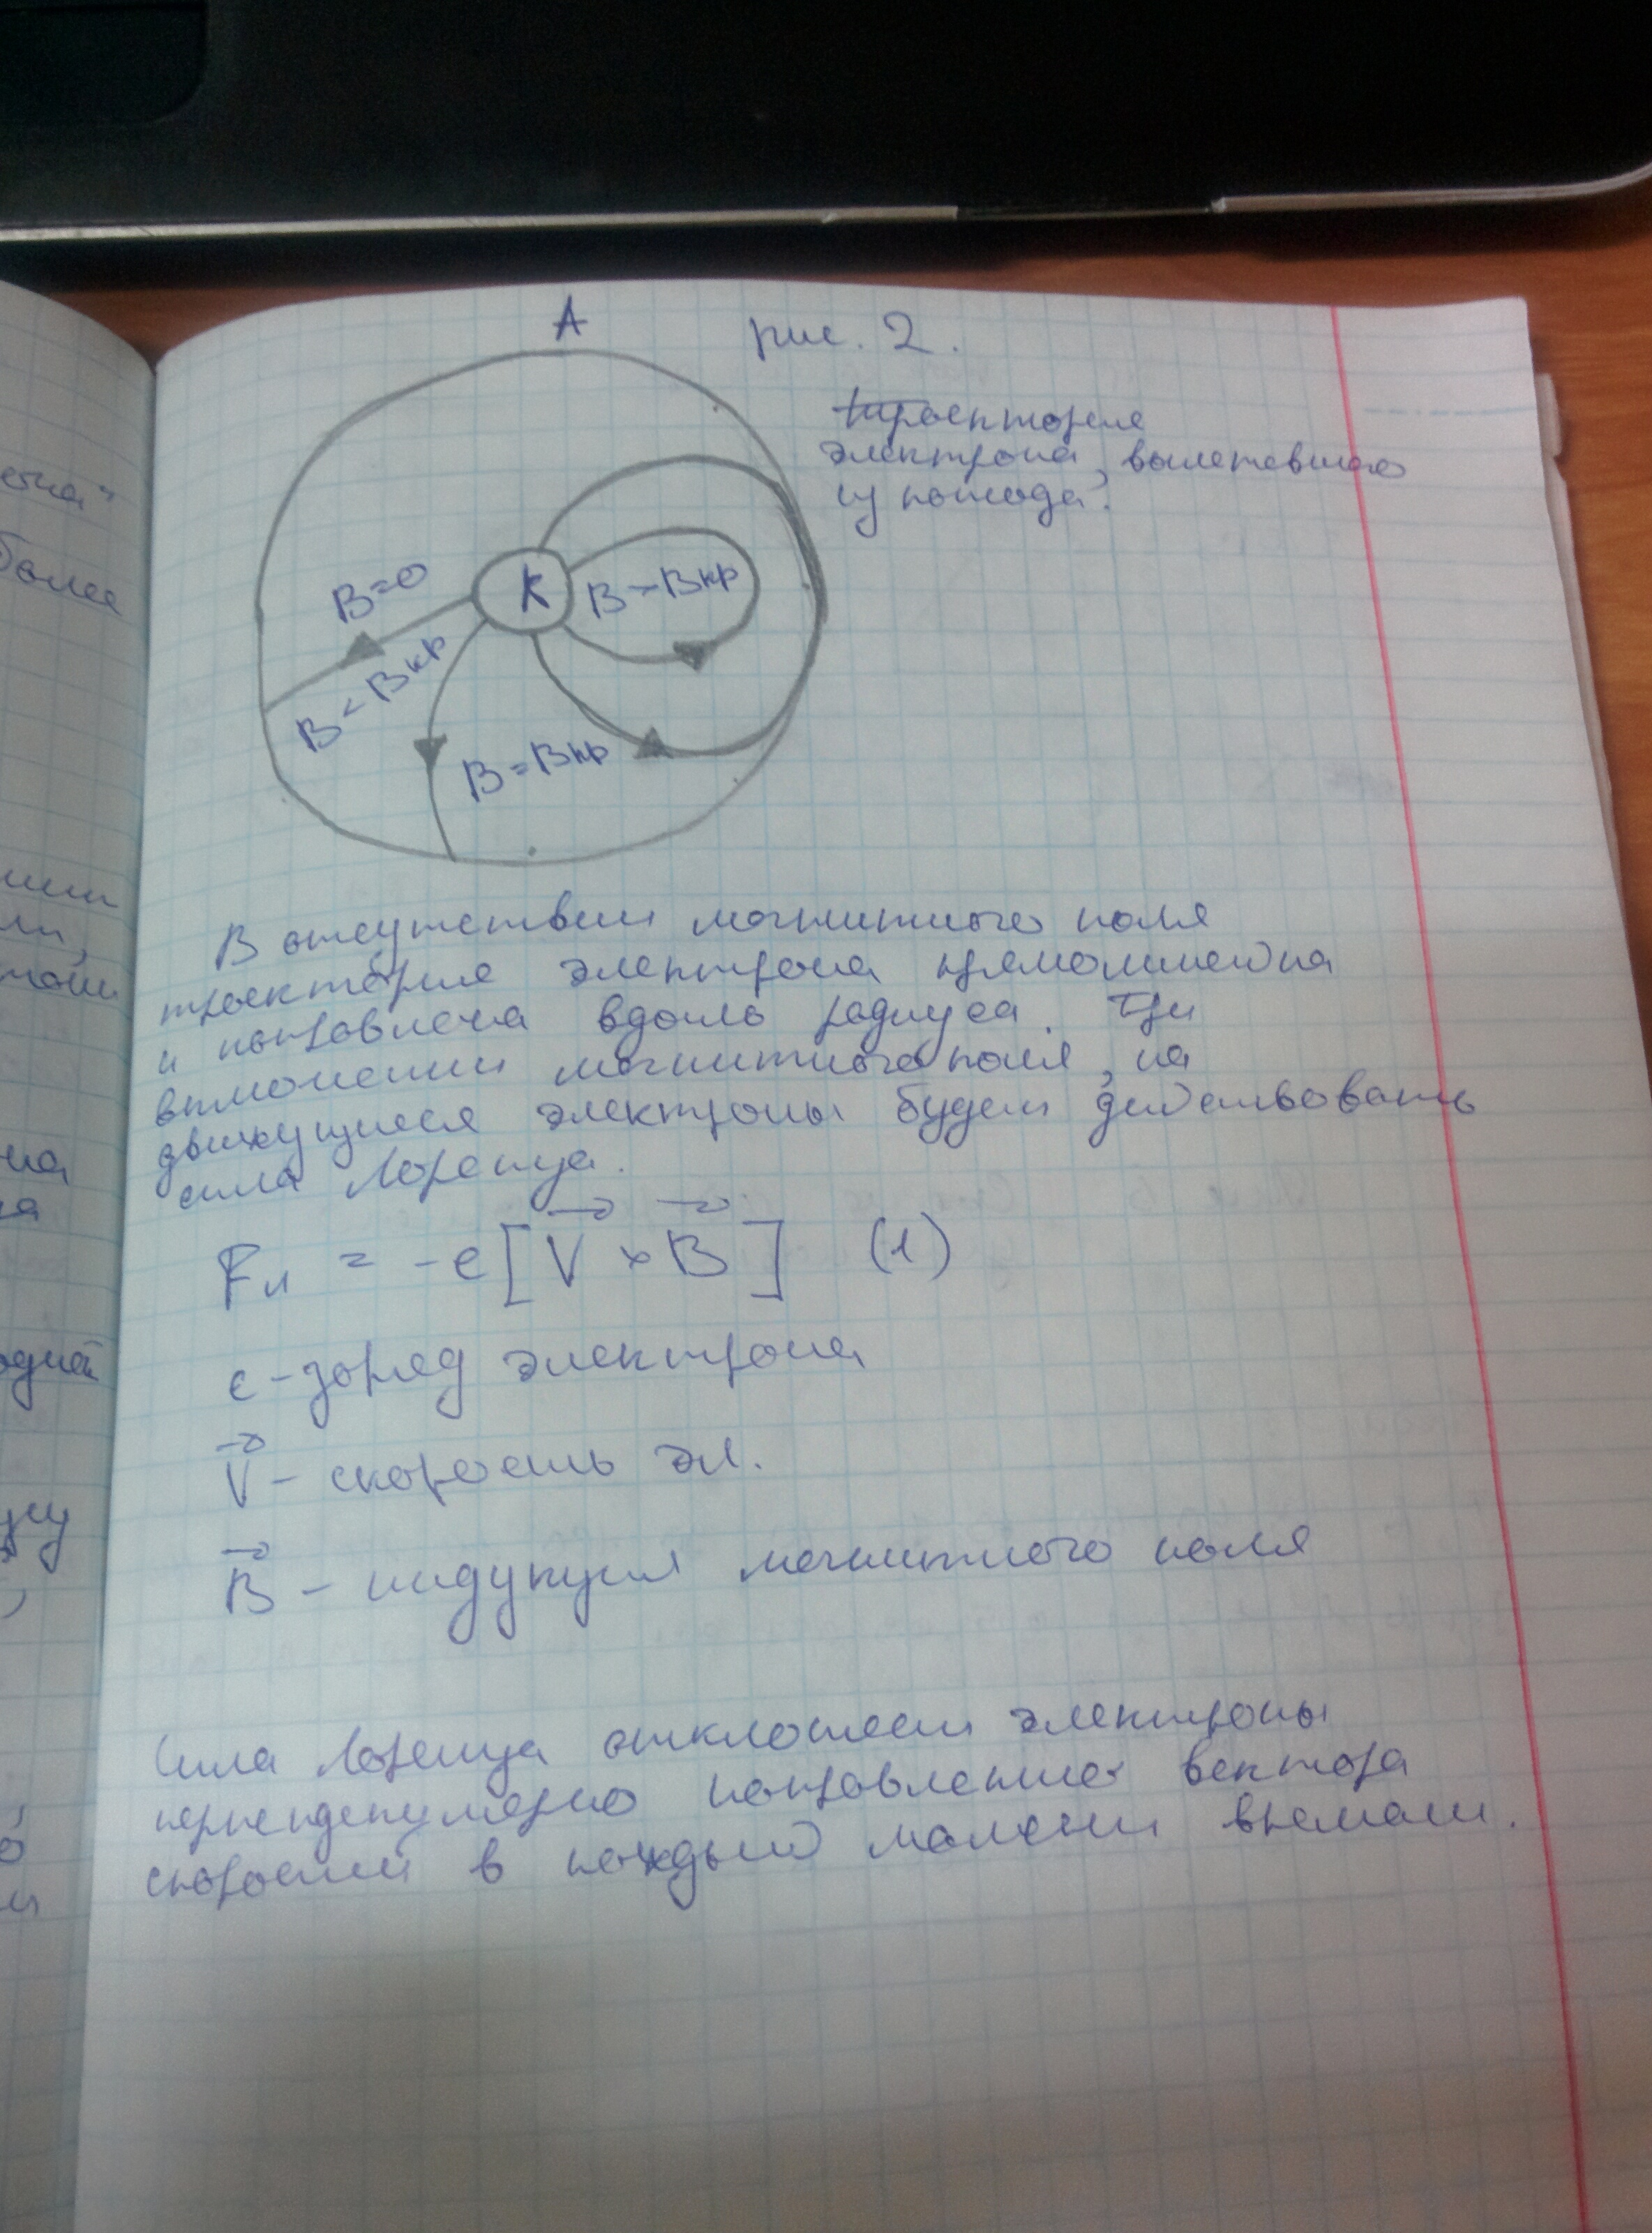 А
рис. 2.
траектория
электрона, вылетевшего
из катода.
B=0
К
B > Bкр
B < Bкр
B = Bкр
В отсутствии магнитного поля
траектория электрона прямолинейна
и направлена вдоль радиуса. При
включении магнитного поля, на
движущиеся электроны будет действовать
сила Лоренца.
Fл = -e[V × B] (1)
e - заряд электрона
V - скорость эл.
B - индукция магнитного поля
Сила Лоренца отклоняет электроны
перпендикулярно направлению вектора
скорости в каждый момент времени.
етка"
более
одной